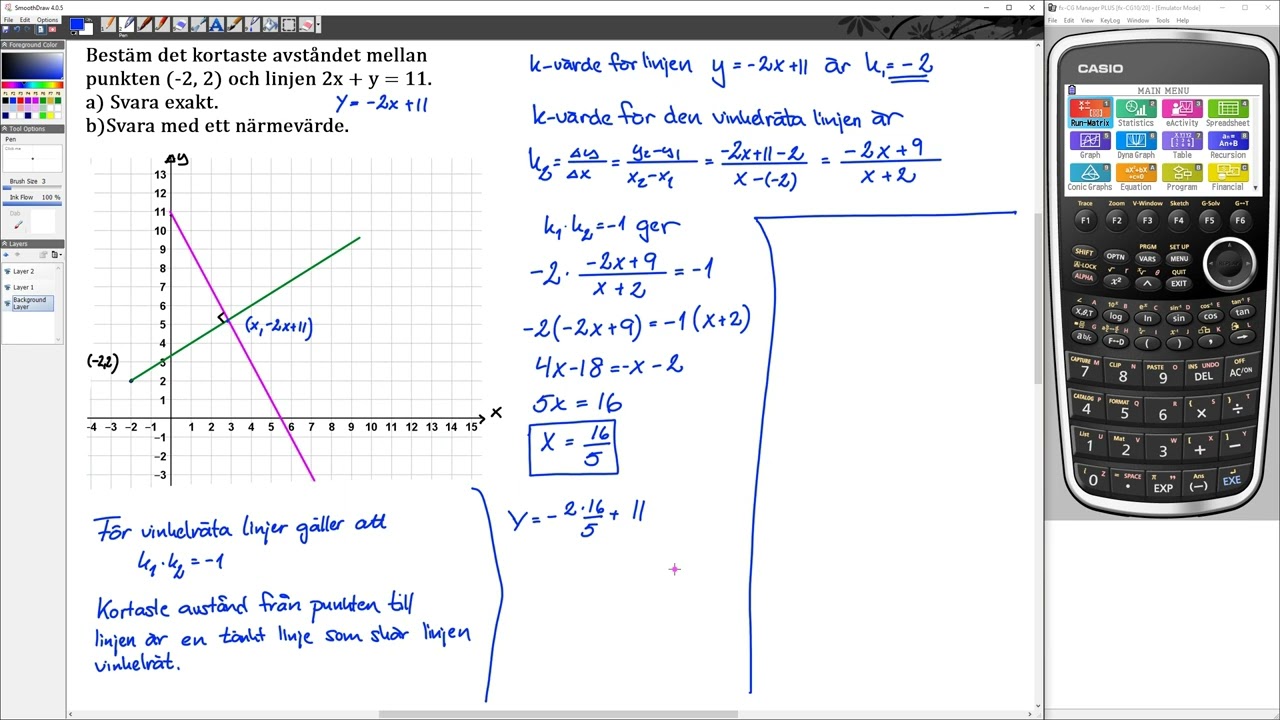 SmoothDraw 4.0.5
File Edit Options
Pen
Foreground Color
Tool Options
Pen
Brush Size 3
Ink Flow 100 %
Dab
Layers
Layer 2
Layer 1
Background Layer
Bestäm det kortaste avståndet mellan
punkten (-2, 2) och linjen 2x + y = 11.
a) Svara exakt.
y = -2x + 11
b)Svara med ett närmevärde.
y
13
12
11
10
9
8
7
6
5
4
3
2
1
-4 -3 -2 -1 1 2 3 4 5 6 7 8 9 10 11 12 13 14 15 x
-1
-2
-3
(-2,2)
(x, -2x+11)
För vinkelräta linjer gäller att
k₁·k₂ = -1
Kortaste avstånd från punkten till
linjen är en tänkt linje som skär linjen
vinkelrät.
k-värde för linjen y = -2x+11 är k₁ = -2
k-värde för den vinkelräta linjen är
k₂ = Δy/Δx = (y₂-y₁)/(x₂-x₁) = (-2x+11-2)/(x-(-2)) = (-2x+9)/(x+2)
k₁·k₂ = -1 ger
-2 · (-2x+9)/(x+2) = -1
-2(-2x+9) = -1(x+2)
4x-18 = -x-2
5x = 16
x = 16/5
y = - 2·16/5 + 11
fx-CG Manager PLUS [fx-CG10/20] - [Emulator Mode]
File Edit View KeyLog Window Tools Help
CASIO
MAIN MENU
Run-Matrix Statistics eActivity Spreadsheet
Graph Dyna Graph Table Recursion
Conic Graphs Equation Program Financial
Trace Zoom V-Window Sketch G-Solv G↔T
F1 F2 F3 F4 F5 F6
SHIFT OPTN PRGM VARS SET UP MENU
A-LOCK ALPHA x² ^ QUIT EXIT
X,θ,T log ln sin cos tan
a b/c F↔D ( ) , →
CAPTURE 7 CLIP 8 PASTE 9 INS DEL UNDO OFF AC/ON
CATALOG 4 FORMAT 5 6 × ÷
List 1 Mat 2 3 + −
0 . EXP Ans (−) EXE